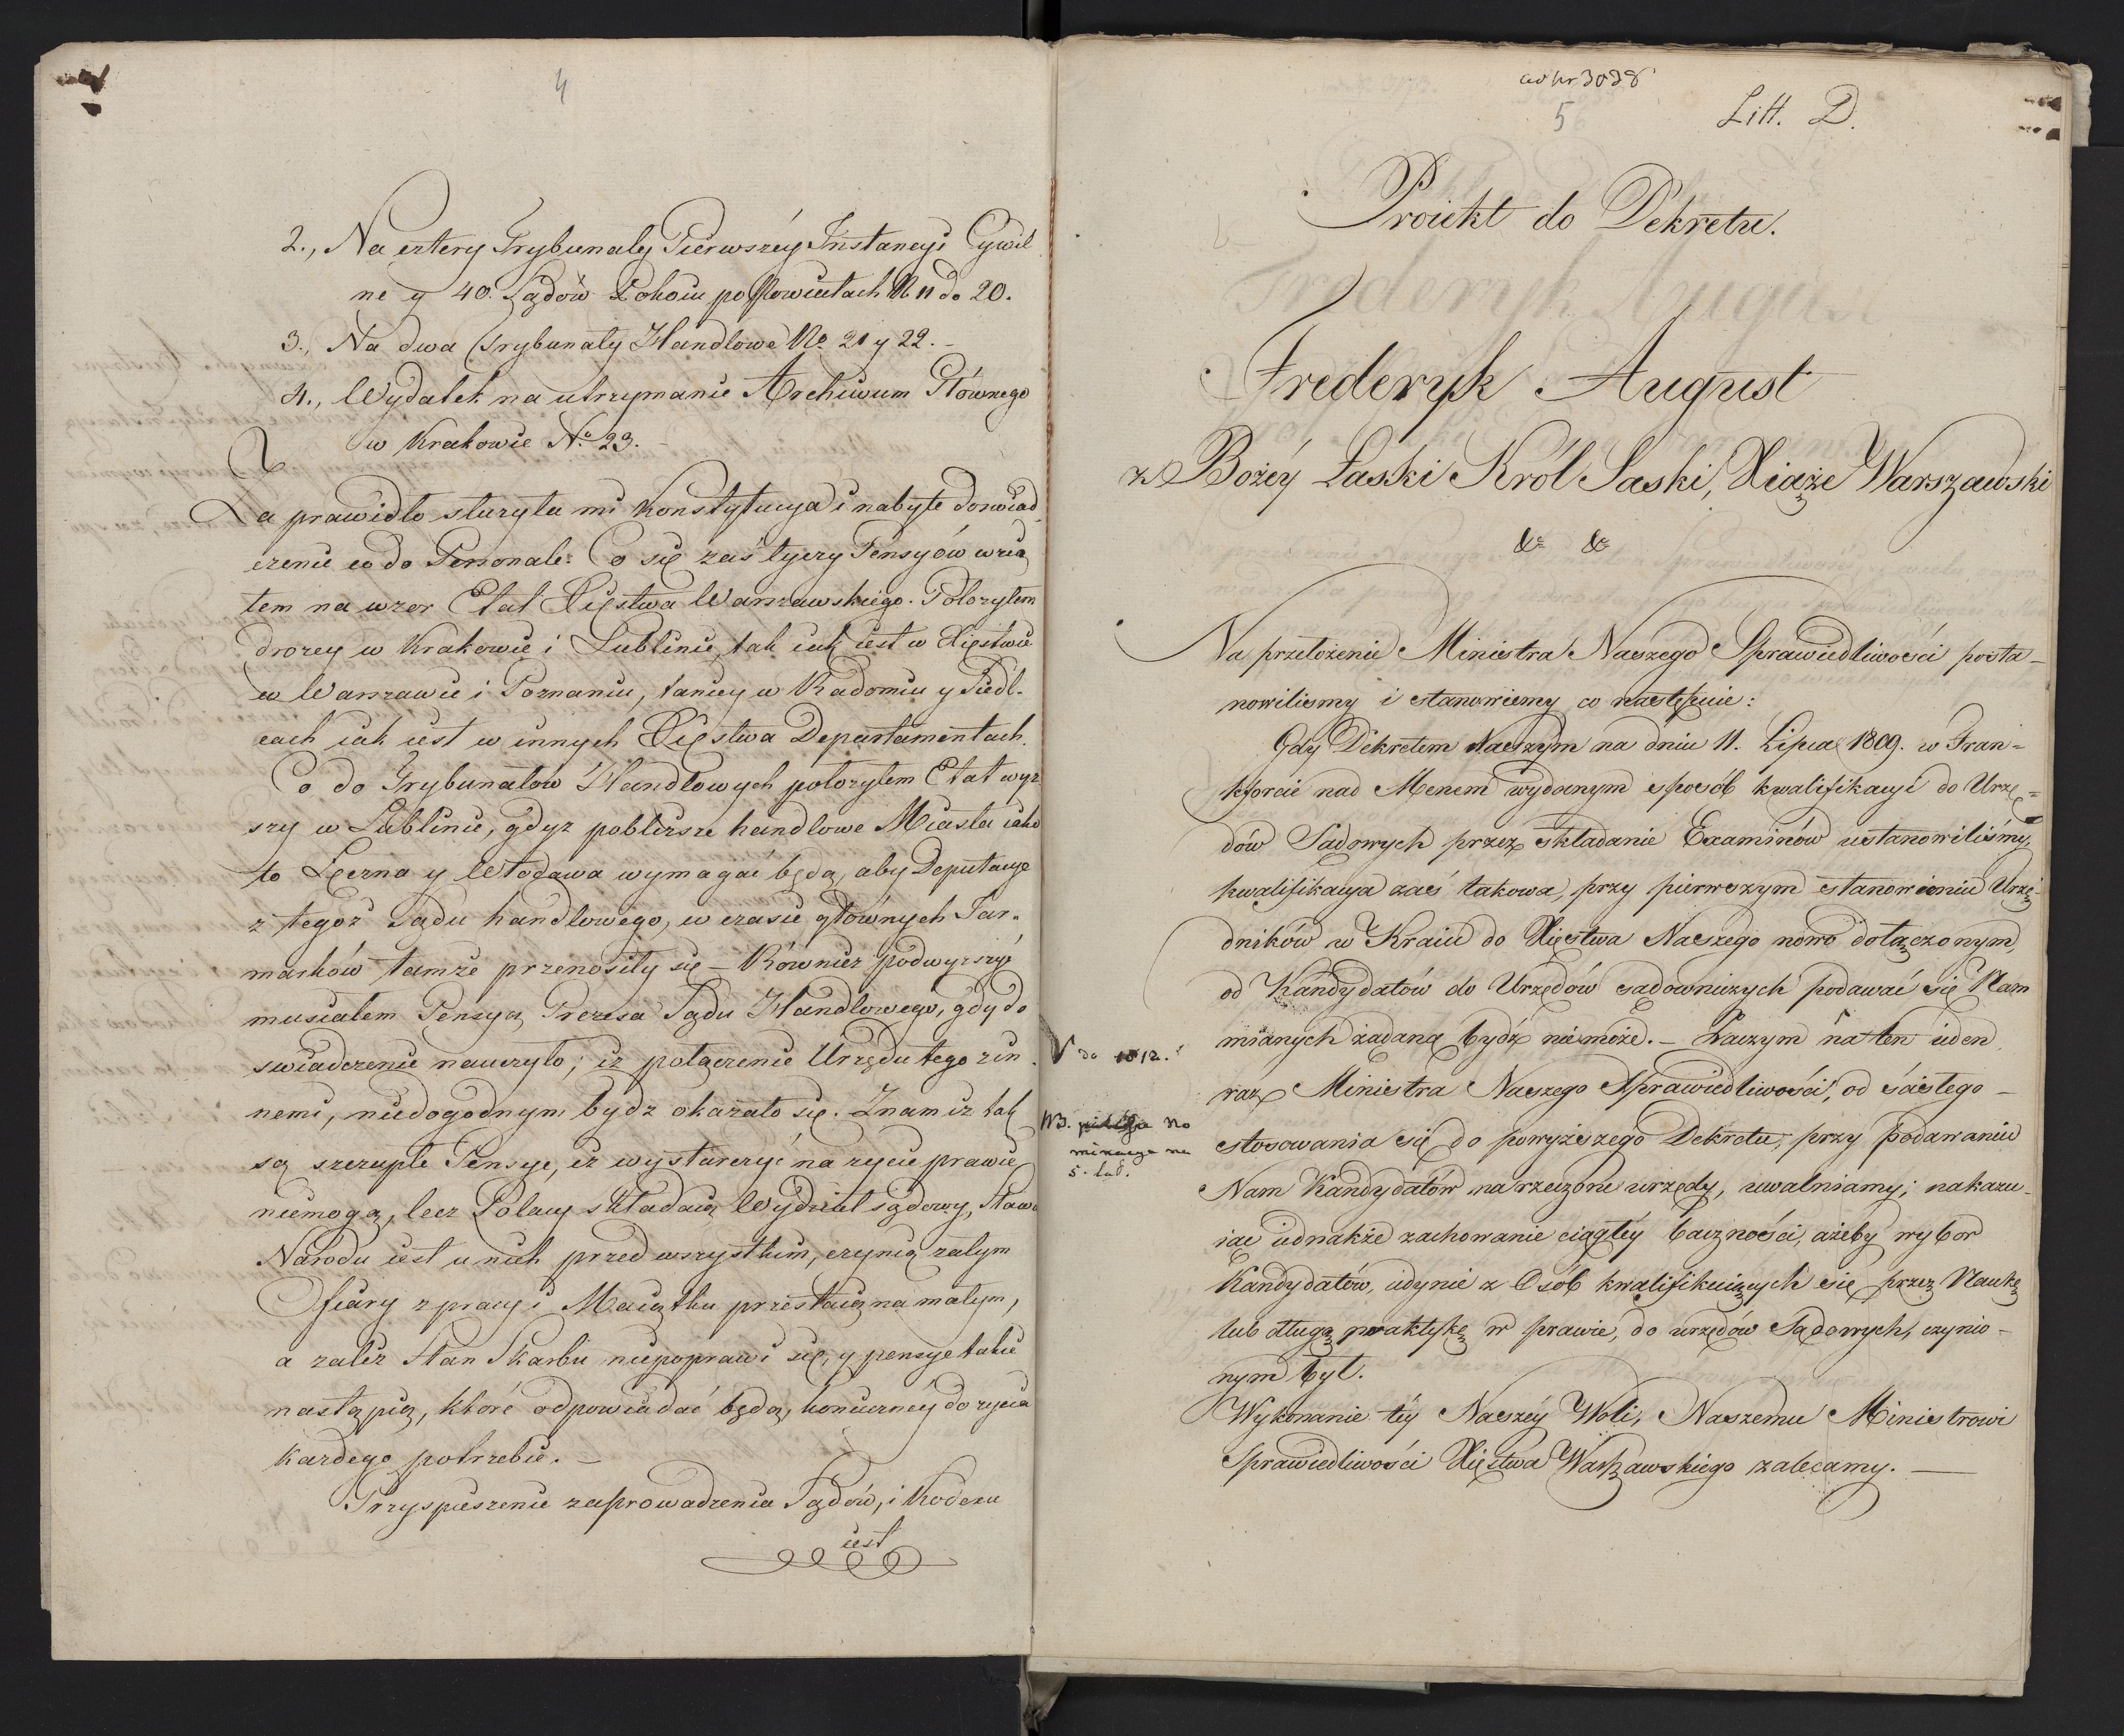 4
2., Na cztery Trybunały Pierwszéy Instancyi Cywil
ne y 40. Sądów Pokoiu po Powiatach N 11 do 20.
3., Na dwa Trybunały Handlowe No 21 y 22. -
4., Wydatek na utrzymanie Archiwum Głównego
w Krakowie No 23. -
Za prawidło służyła mi Konstytucya i nabyte doswiad
czenie co do Personale: Co się zaś tyczy Pensyów wzią
łem na wzor Etat Xięstwa Warszawskiego. Położyłem
drożey w Krakowie i Lublinie, tak iak iest w Xięstwie
w Warszawie i Poznaniu, taniey w Radomiu y Siedl-
cach iak iest w innych Xięstwa Departamentach.
Co do Trybunałow Handlowych położyłem Etat wyż
szy w Lublinie, gdyż pobliższe handlowe Miasta iako
to Łęczna y Włodawa wymagać będą, aby Deputacye
z tegoż Sądu handlowego, w czasie głównych Jar-
marków tamże przenosiły się - Również podwyższyć
musiałem Pensyą Prezesa Sądu Handlowego, gdy do
swiadczenie nauczyło; iż połączenie Urzędu tego z in
nemi, niedogodnym bydz okazało się. Znam iż tak
są szczupłe Pensye, iż wystarczyć na życie prawie
niemogą, lecz Polacy składaią Wydział sądowy, Sława
Narodu iest u nich przed wszystkim, czynią zatym
Ofiary z pracy i Maiątku przestaią na małym,
a zaliż Stan Skarbu niepoprawi się, y pensye takie
nastąpią, któré odpowiadać będą, konieczney do życia
każdego potrzebie. -
Przyspieszenie zaprowadzenia Sądów, i Kodexu
iest
ad Nr 3038
5
Litt. D.
Proiekt do Dekretu.
Frederyk August
z Bożéy Łaski Król Saski, Xiąże Warszawski
&c &c
Na przełożenie Ministra Naszego Sprawiedliwości posta-
nowilismy i stanowiemy co następuie:
Gdy Dekretem Naszym na dniu 11. Lipca 1809. w Fran-
kforcie nad Menem wydanym sposób kwalifikacyi do Urzę-
dów Sądowych przez składanie Examinów ustanowiliśmy,
kwalifikacya zaś takowa, przy pierwszym stanowieniu Urzę-
dników w Kraiu do Xięstwa Naszego nowo dołączonym,
od Kandydatów do Urzędów sądowniczych podawać się Nam
mianych żądaną bydź niemoże. - Raczym na ten ieden
V do 1812.
raz Ministra Naszego Sprawiedliwości, od ścisłego -
NB. No
minacya na
5. lad.
stosowania się do powyższego Dekretu, przy podawaniu
Nam Kandydatów na rzeczone urzędy, uwalniamy; nakazu-
iąc iednakże zachowanie ciągłéy baczności, ażeby wybor
Kandydatów, idynie z Osób kwalifikuiących się przez Naukę
lub długą praktykę w prawie, do urzędów Sądowych, czynio-
nym był.
Wykonanie téy Naszéy Woli, Naszemu Ministrowi
Sprawiedliwości Xięstwa Warszawskiego zalecamy. -